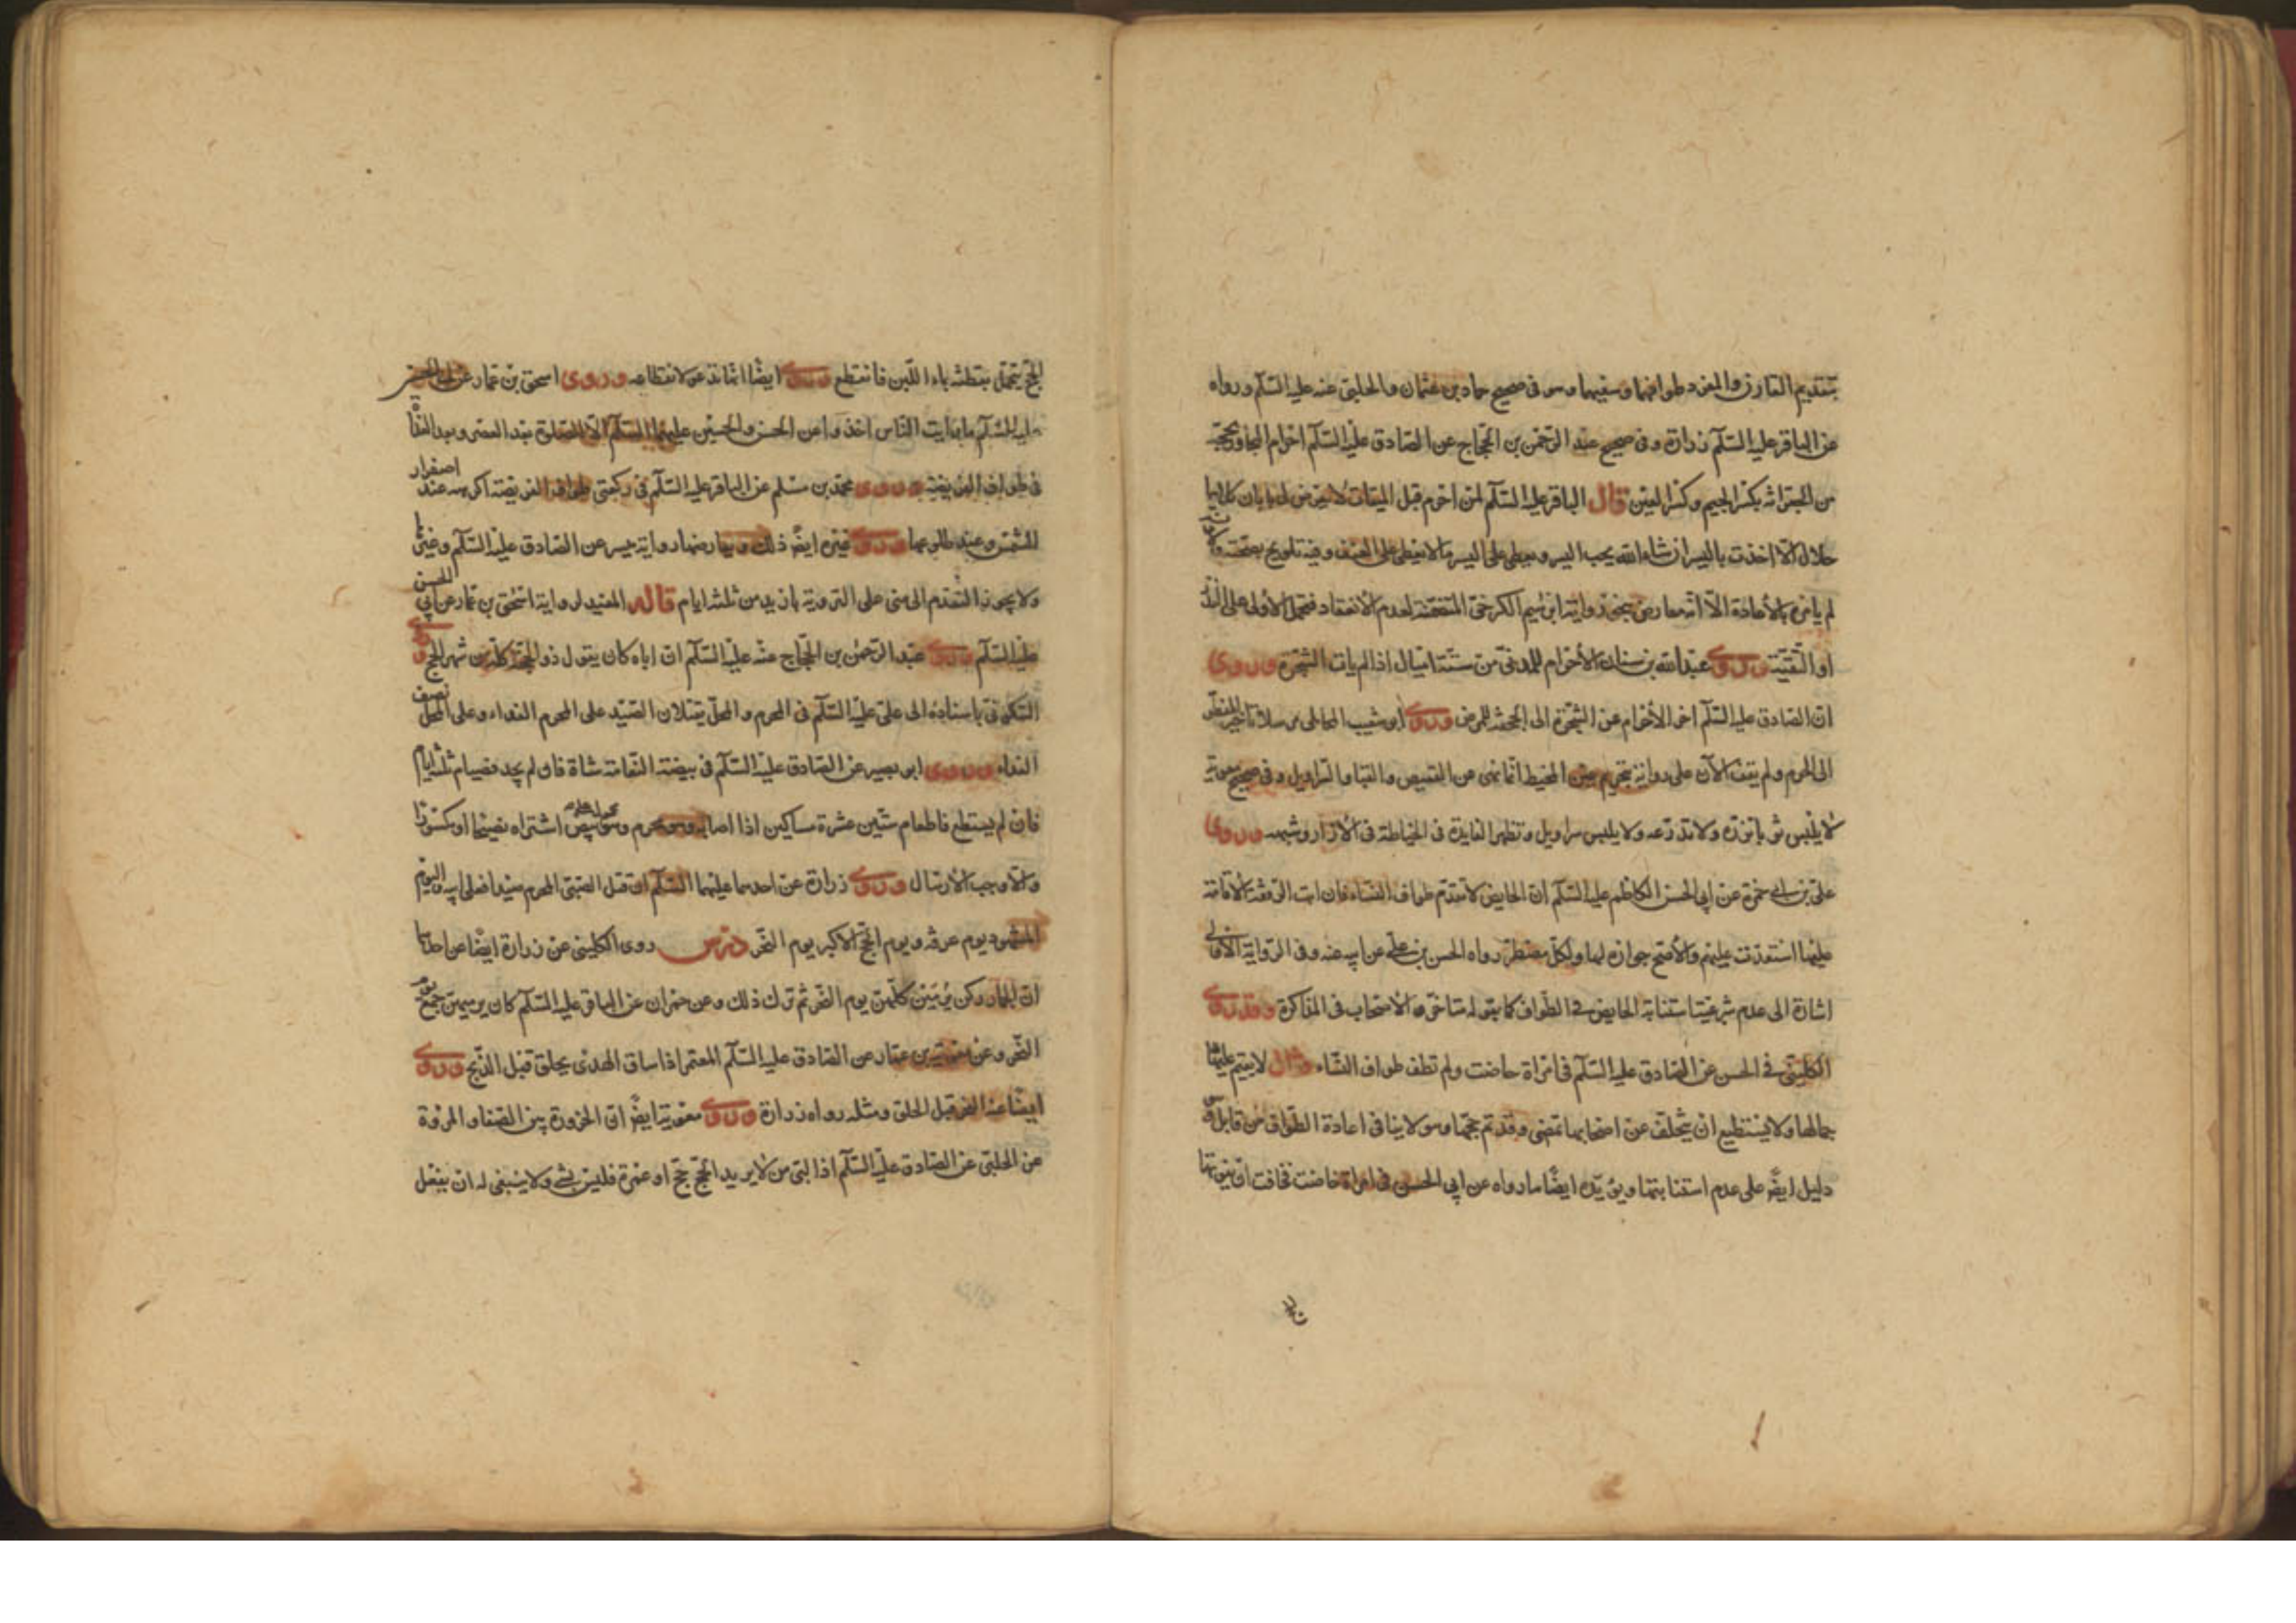 بتقديم القارن والمفرد طوافهما وسعيهما وهو فى صحيح حماد بن عثمان والحلبى عنه عليه السلم ورواه
عن الباقر عليه السلم زرارة وفى صحيح عبد الرحمن بن الحجاج عن الصادق عليه السلم احرام المجاور بحجة
من الجعرانه بكسر الجيم وكسر العين قال الباقر عليه السلم لمن احرم قبل الميقات
حلال الا اخذت باليسر ان شاء الله يحب اليسر ويعطى على اليسر ما لا يعطى على العنف وفيه تلويح بصحته
لم يامره بالاعادة الا انه معارض رواية ابراهيم الكرخى المتضمنة لعدم الانعقاد فتحمل الاولى على النذر
او التقية وروى عبد الله بن سنان الاحرام للمدنى من ستة اميال اذا لم يات الشجرة وروى
ان الصادق عليه السلم اخر الاحرام عن الشجرة الى الجحفه للمرض وروى ابو شعيب المحاملى مرسلا تاخير المضطر
الى الحرم ولم يقف الآن على رواية بتحريم عين المخيط انما نهى عن القميص والقبا والسراويل وفى صحيح معوية
لا يلبس ثوبا تزره ولا تدرعه ولا يلبس سراويل وتظهر الفايدة فى الخياطة فى الازار وشبهه وروى
على بن ابى حمزة عن ابى الحسن الكاظم عليه السلم ان الحايض لا تقدم طواف النساء فان ابت الرفقة الاقامة
عليها استعدت عليهم والاصح جوازه لها ولكل مضطر رواه الحسن بن على عن ابيه عنه وفى الرواية الاولى
اشارة الى عدم شرعية استنابة الحايض فى الطواف كما يقوله متاخروا الاصحاب فى المذاكرة وقد روى
الكلينى فى الحسن عن الصادق عليه السلم فى امراة حاضت ولم تطف طواف النساء وقال لا يقيم عليها
جمالها ولا يستطيع ان تتخلف عن اصحابها تمضى وقد تم حجها وهو لا ينافى اعادة الطواف من قابل
دليل ايضا على عدم استنابتها ويؤيده ايضا ما رواه عن ابى الحسن فى امراة حاضت فخافت ان يفوتها
الحج تحتمل بقطنة بماء اللبن فانقطع وروى ايضا انها تدعو لانقطاعه وروى اسحق بن عمار عن ابى الحسن
عليه السلم ما رايت الناس اخذوا عن الحسن والحسين عليهما السلم الا الصلوة بعد العصر وبعد الغداة
فى طواف الفريضة وروى محمد بن مسلم عن الباقر عليه السلم فى ركعتى طواف الفريضة اكرهه عند اصفرار
الشمس وعند طلوعها وروى غيره ايضا ذلك ويعارضهما رواية ميسر عن الصادق عليه السلم وغيرها
ولا يجوز التقدم الى منى على التروية بازيد من ثلثه ايام قاله المفيد لرواية اسحق بن عمار عن ابى الحسن
عليه السلم وروى عبد الرحمن بن الحجاج عنه عليه السلم ان اباه كان يقول ذو الحجة كله من شهر الحج وروى
السكونى باسناده الى على عليه السلم فى المحرم والمحل يقتلان الصيد على المحرم الفداء وعلى المحل نصف
الفداء وروى ابو بصير عن الصادق عليه السلم فى بيضة النعامة شاة فان لم يجد فصيام ثلثه ايام
فان لم يستطع فاطعام ستين عشرة مساكين اذا اصابه وهو محرم اشتراه
والا وجب الارسال وروى زرارة عن احدهما عليهما السلم ان قتل الصبى المحرم صيدا فعلى ابيه واليوم
المشهود يوم عرفه ويوم الحج الاكبر يوم النحر درس روى الكلينى عن زرارة ايضا عن احدهما
ان الجمار كن يرمين كلهن يوم النحر ثم ترك ذلك وعن حمران عن الباقر عليه السلم كان يرميهن جمع يوم
النحر وعن معوية بن عمار عن الصادق عليه السلم المعتمر اذا ساق الهدى يحلق قبل الذبح وروى
ايضا عنه النحر قبل الحلق ومثله رواه زرارة وروى معوية ايضا ان الحزورة بين الصفا والمروة
عن الحلبى عن الصادق عليه السلم اذا لبى من لا يريد الحج بحج او عمرة فليس بشى ولا ينبغى له ان يفعل